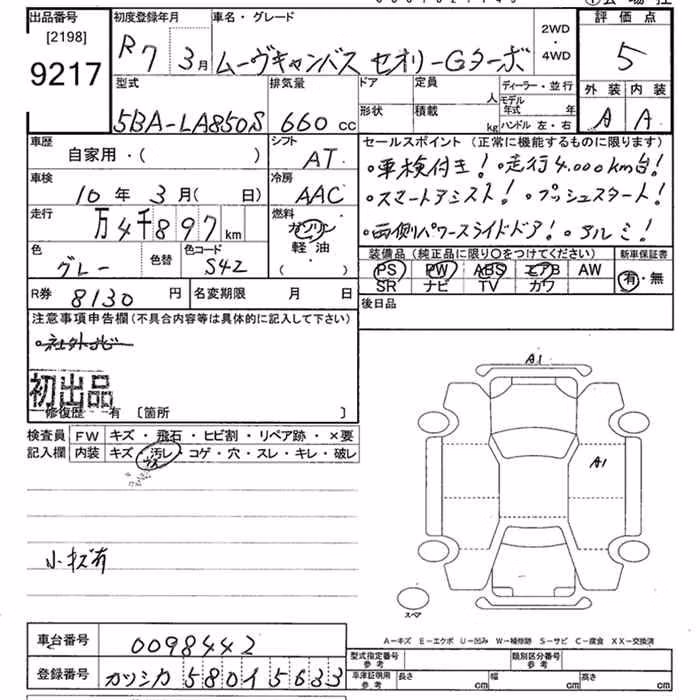 出品番号 初度登録年月 車名・グレード 2WD・4WD 評価点
[2198]
9217
R7 3月 ムーヴキャンバス セオリーGターボ 5
型式 排気量 ドア 定員 人 ディーラー・並行 外装 内装
モデル年式 年
5BA-LA850S 660 cc 形状 積載 kg ハンドル 左・右 A A
車歴 シフト セールスポイント (正常に機能するものに限ります)
自家用・( ) AT ・車検付き! ・走行4,000km台!
車検 冷房
10年 3月( 日) AAC ・スマートアシスト! ・プッシュスタート!
走行 燃料
万4千897km ガソリン ・両側パワースライドドア! ・アルミ!
軽・油
( )
色 色替 色コード 装備品 (純正品に限り○をつけてください) 新車保証書
グレー S42 PS PW ABS エアB AW 有・無
SR ナビ TV カワ
R券 8130 円 名変期限 月 日 後日品
注意事項申告欄(不具合内容等は具体的に記入して下さい)
・社外ナビ
初出品
修復歴 有 [箇所 ]
A1
検査員 FW キズ・飛石・ヒビ割・リペア跡・×要
記入欄 内装 キズ・汚レ・コゲ・穴・スレ・キレ・破レ
A1
小キズ有
スペア
A-キズ E-エクボ U-凹み W-補修跡 S-サビ C-腐食 XX-交換済
車台番号 0098442
型式指定番号 参考 類別区分番号 参考
登録番号 カツシカ 580 1 5633
車庫証明用 参考 長さ cm 幅 cm 高さ cm